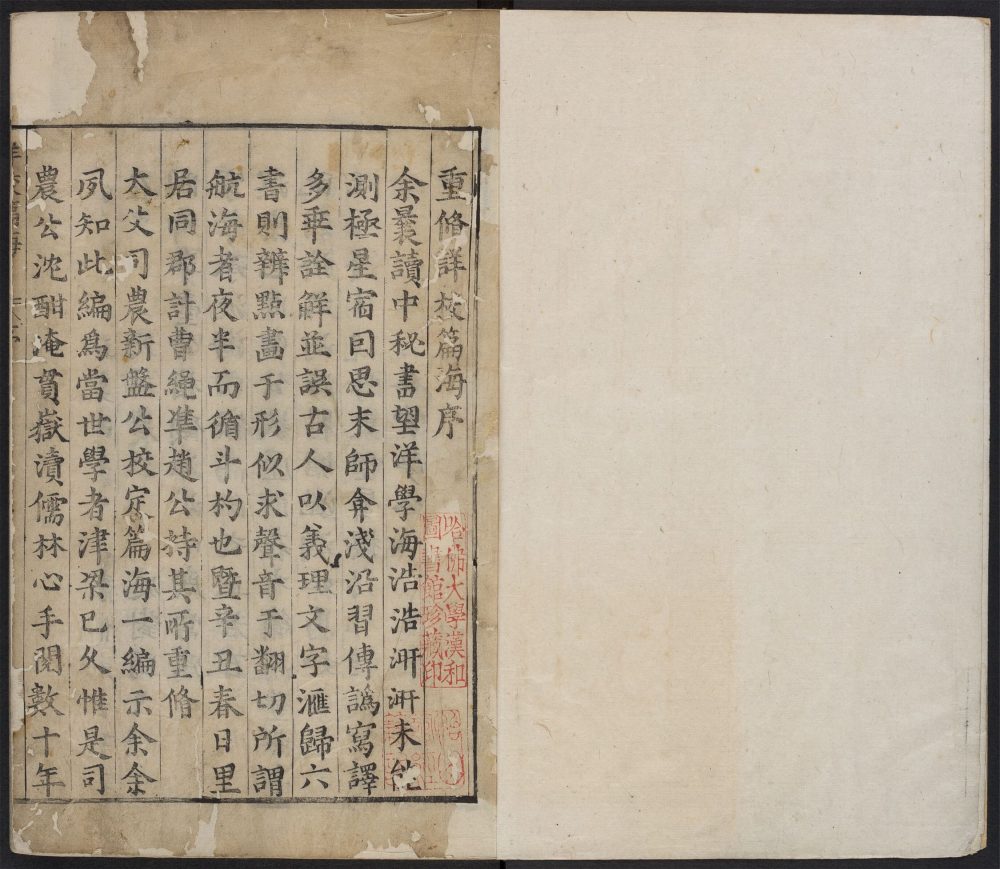 重脩詳校篇海序
余曩讀中秘書望洋學海浩浩汧汧未能
測極星宿囙思末師弇淺沿習傳譌寫譯
多乖詮解並誤古人以義理文字滙歸六
書則辨點畫于形似求聲音于翻切所謂
航海者夜半而循斗杓也暨辛丑春日里
居同郡計曹繩準趙公持其所重脩
大父司農新盤公校定篇海一編示余余
夙知此編爲當世學者津梁已久惟是司
農公沈酣淹貫嶽瀆儒林心手閱數十年
詳校篇海
哈佛大學漢和
圖書館珍藏印